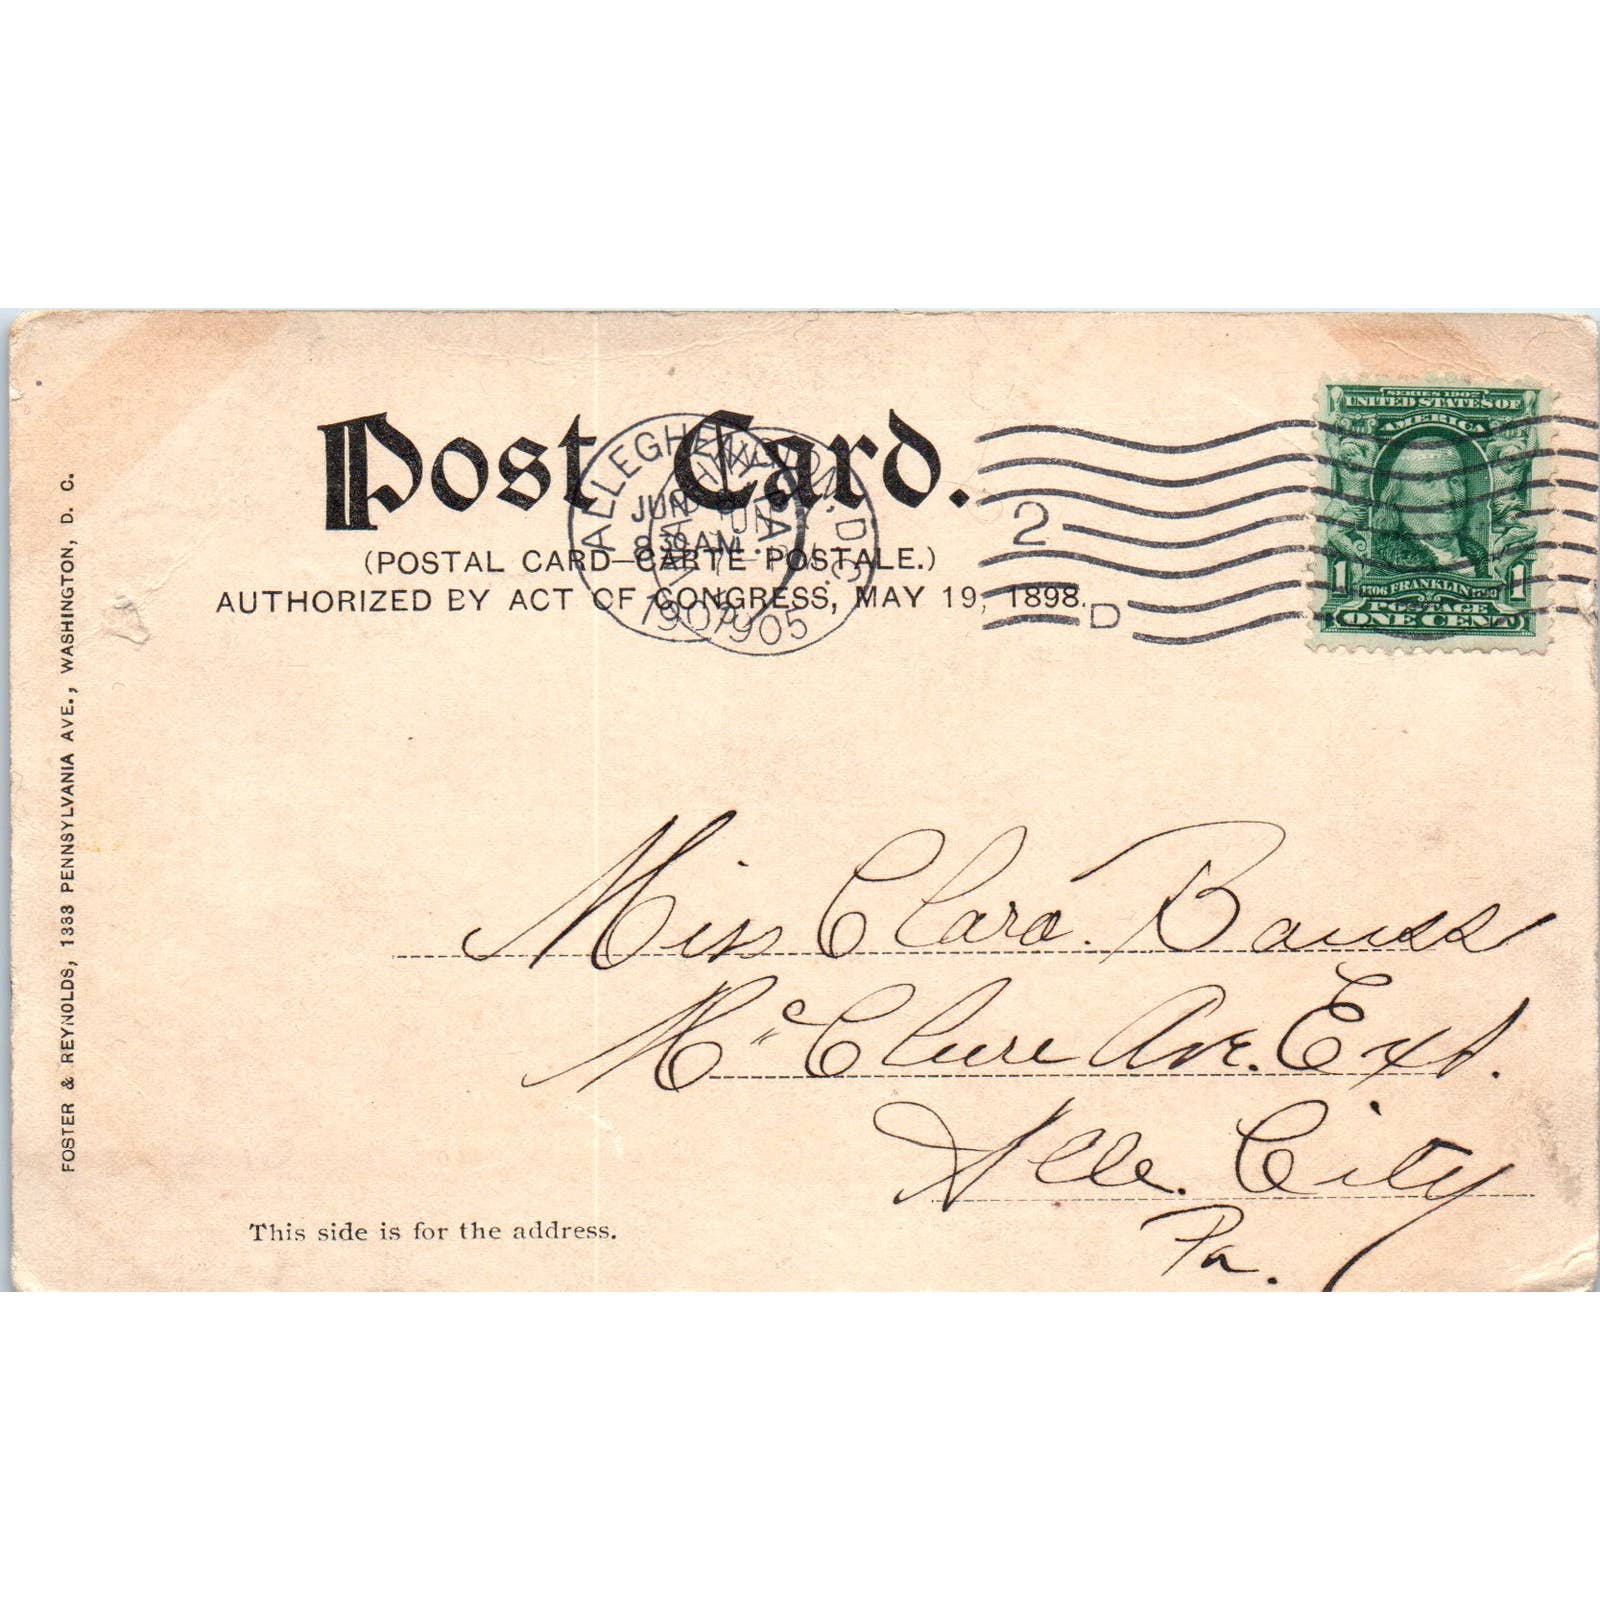 Post Card.
(POSTAL CARD—CARTE POSTALE.)
AUTHORIZED BY ACT OF CONGRESS, MAY 19, 1898.
ALLEGHENY, PA.
JUN
8 30 AM
1905
WASHINGTON, D.C.
JUN
1905
2
D
SERIES 1902
UNITED STATES OF
AMERICA
1706 FRANKLIN 1790
1 1
POSTAGE
ONE CENT
FOSTER & REYNOLDS, 1333 PENNSYLVANIA AVE., WASHINGTON, D. C.
Miss Clara. Bauss
McClure Ave. Ext.
Alle. City
Pa.
This side is for the address.